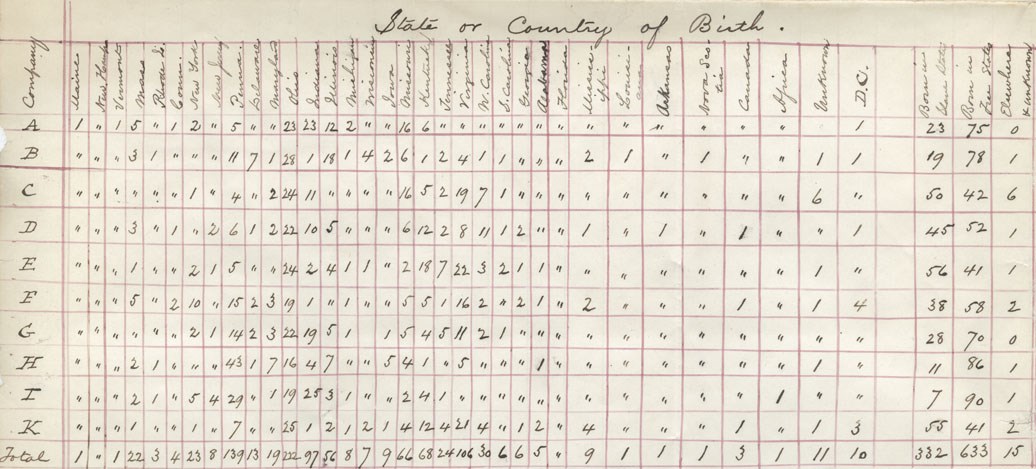 State or Country of Birth.
Company Maine New Hamp Vermont Mass Rhode I. Conn. New York New Jersey Penna Delaware Maryland Ohio Indiana Illinois Michigan Wisconsin Iowa Missouri Kentucky Tennessee Virginia N. Carolin S. Carolin Georgia Alabama Florida Missis-sippi Louisi-ana Arkansas Nova Sco-tia Canada Africa Unknown D.C. Born in Slave State Born in Free State Elsewhere Unknown
A 1 " 1 5 " 1 2 " 5 " " 23 23 12 2 " " 16 6 " " " " " " " " " " " " " 1 23 75 0
B " " " 3 1 " " " 11 7 1 28 1 18 1 4 2 6 1 2 4 1 1 " " " 2 1 " 1 " " 1 1 19 78 1
C " " " " " " 1 " 4 " 2 24 11 " " " " 16 5 2 19 7 1 " " " " " " " " " 6 " 50 42 6
D " " " 3 " 1 " 2 6 1 2 22 10 5 " " " 6 12 2 8 11 1 2 " " 1 " 1 " 1 " " 1 45 52 1
E " " " 1 " " 2 1 5 " " 24 2 4 1 1 " 2 18 7 22 3 2 1 1 " " " " " " " 1 " 56 41 1
F " " " 5 " 2 10 " 15 2 3 19 1 " 1 " " 5 5 1 16 2 " 2 1 " 2 " " " 1 " 1 4 38 58 2
G " " " " " " 2 1 14 2 3 22 19 5 1 1 5 4 5 11 2 1 " " " " " " " " " " " 28 70 0
H " " " 2 1 " " " 43 1 7 16 4 7 " " 5 4 1 " 5 " " " 1 " " " " " " " 1 " 11 86 1
I " " " 2 1 " 5 4 29 " 1 19 25 3 1 " " 2 4 1 " " " " " " " " " " " 1 " " 7 90 1
K " " " 1 " " 1 " 7 " " 25 1 2 1 2 1 4 12 4 21 4 " 1 2 " 4 " " " 1 " 1 3 55 41 2
Total 1 " 1 22 3 4 23 8 139 13 19 222 97 56 8 7 9 66 68 24 106 30 6 6 5 " 9 1 1 1 3 1 11 10 332 633 15